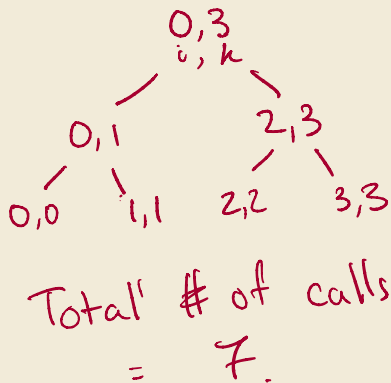 0,3
i, k
0,1 2,3
0,0 1,1 2,2 3,3
Total # of calls
= 7.